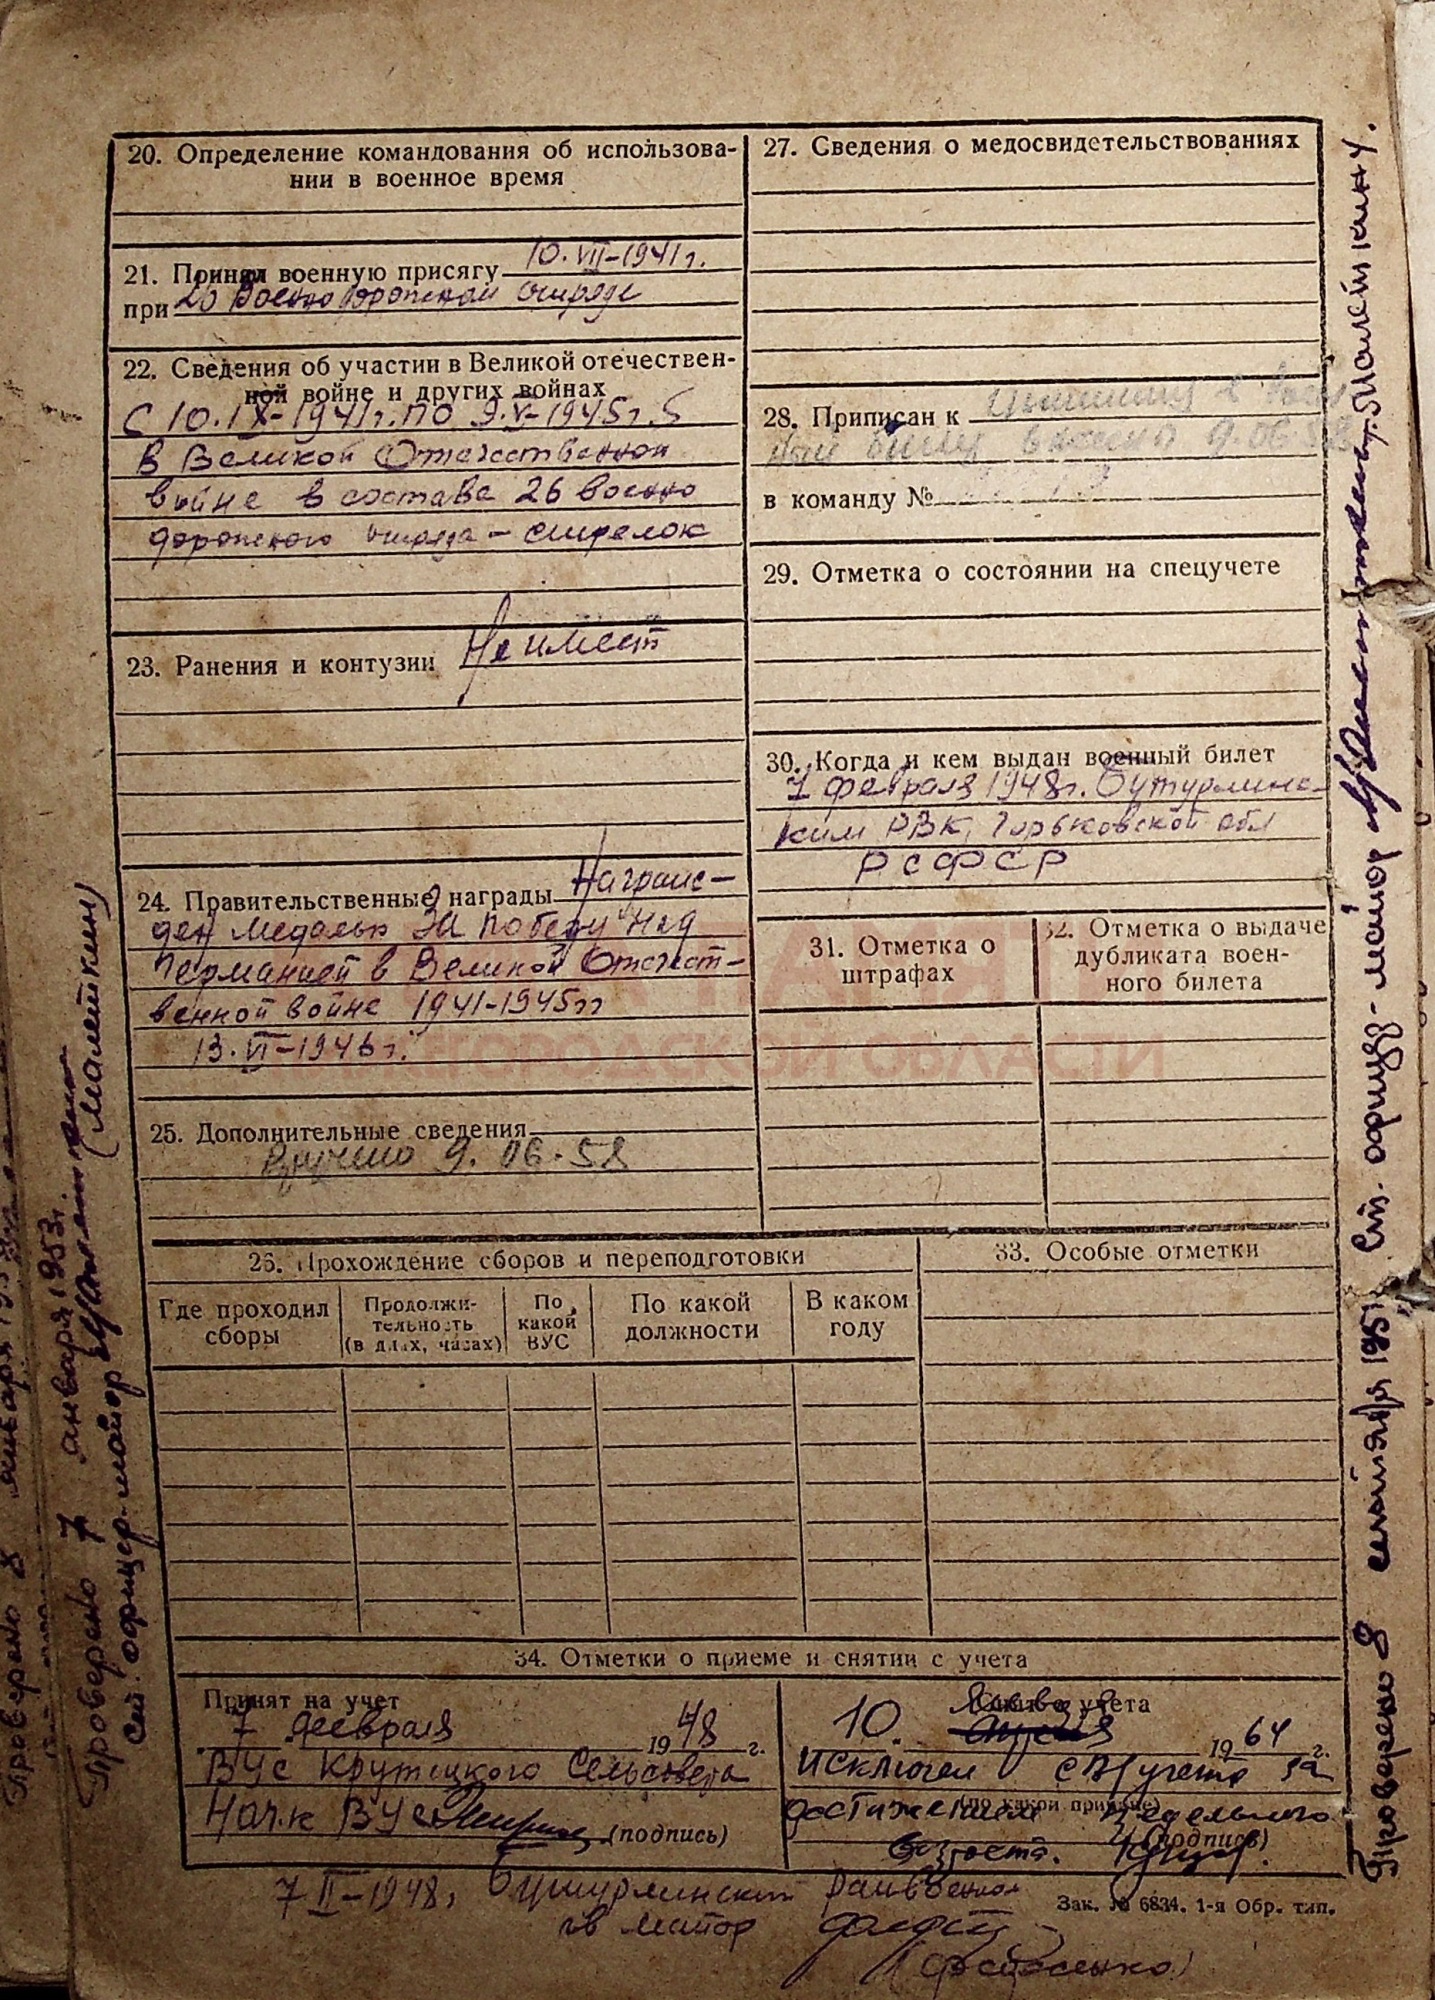 20. Определение командования об использова-
нии в военное время
21. Принял военную присягу 10.VII-1941г.
при 26 Военно дорожном отряде
22. Сведения об участии в Великой отечествен-
ной войне и других войнах
С 10.IX-1941г. по 9.V-1945г.
в Великой Отечественной
войне в составе 26 военно
дорожного отряда - стрелок
23. Ранения и контузии Не имеет
24. Правительственные награды Награж-
ден медалью "За победу над
Германией в Великой Отечест-
венной войне 1941-1945гг
13.VI-1946г.
25. Дополнительные сведения
Вручено 9.06.58
27. Сведения о медосвидетельствованиях
28. Приписан к
9.06.58
в команду №
29. Отметка о состоянии на спецучете
30. Когда и кем выдан военный билет
7 февраля 1948г. Бутурлинс-
ким РВК, Горьковской обл
РСФСР
31. Отметка о
штрафах
32. Отметка о выдаче
дубликата воен-
ного билета
ГОРОДСКОЙ ОБЛАСТИ
26. Прохождение сборов и переподготовки
Где проходил
сборы
Продолжи-
тельность
(в днях, часах)
По
какой
ВУС
По какой
должности
В каком
году
33. Особые отметки
34. Отметки о приеме и снятии с учета
Принят на учет
7 февраля 1948 г.
ВУС Крутицкого Сельсовета
Нач-к ВУС (подпись)
Снят с учета
10. января 1964 г.
исключен с В/учета за
достижением предельного
(по какой причине)
возраста. (подпись)
7 II-1948г Бутурлинский райвоенком
гв майор
(Федосенко)
Зак. № 6834. 1-я Обр. тип.
Проверено 8 января
Проверено 7 января 1953г.
Ст. офицер-майор (Малеткин)
Проверено 8 сентября 1951г. Ст. офицер-майор